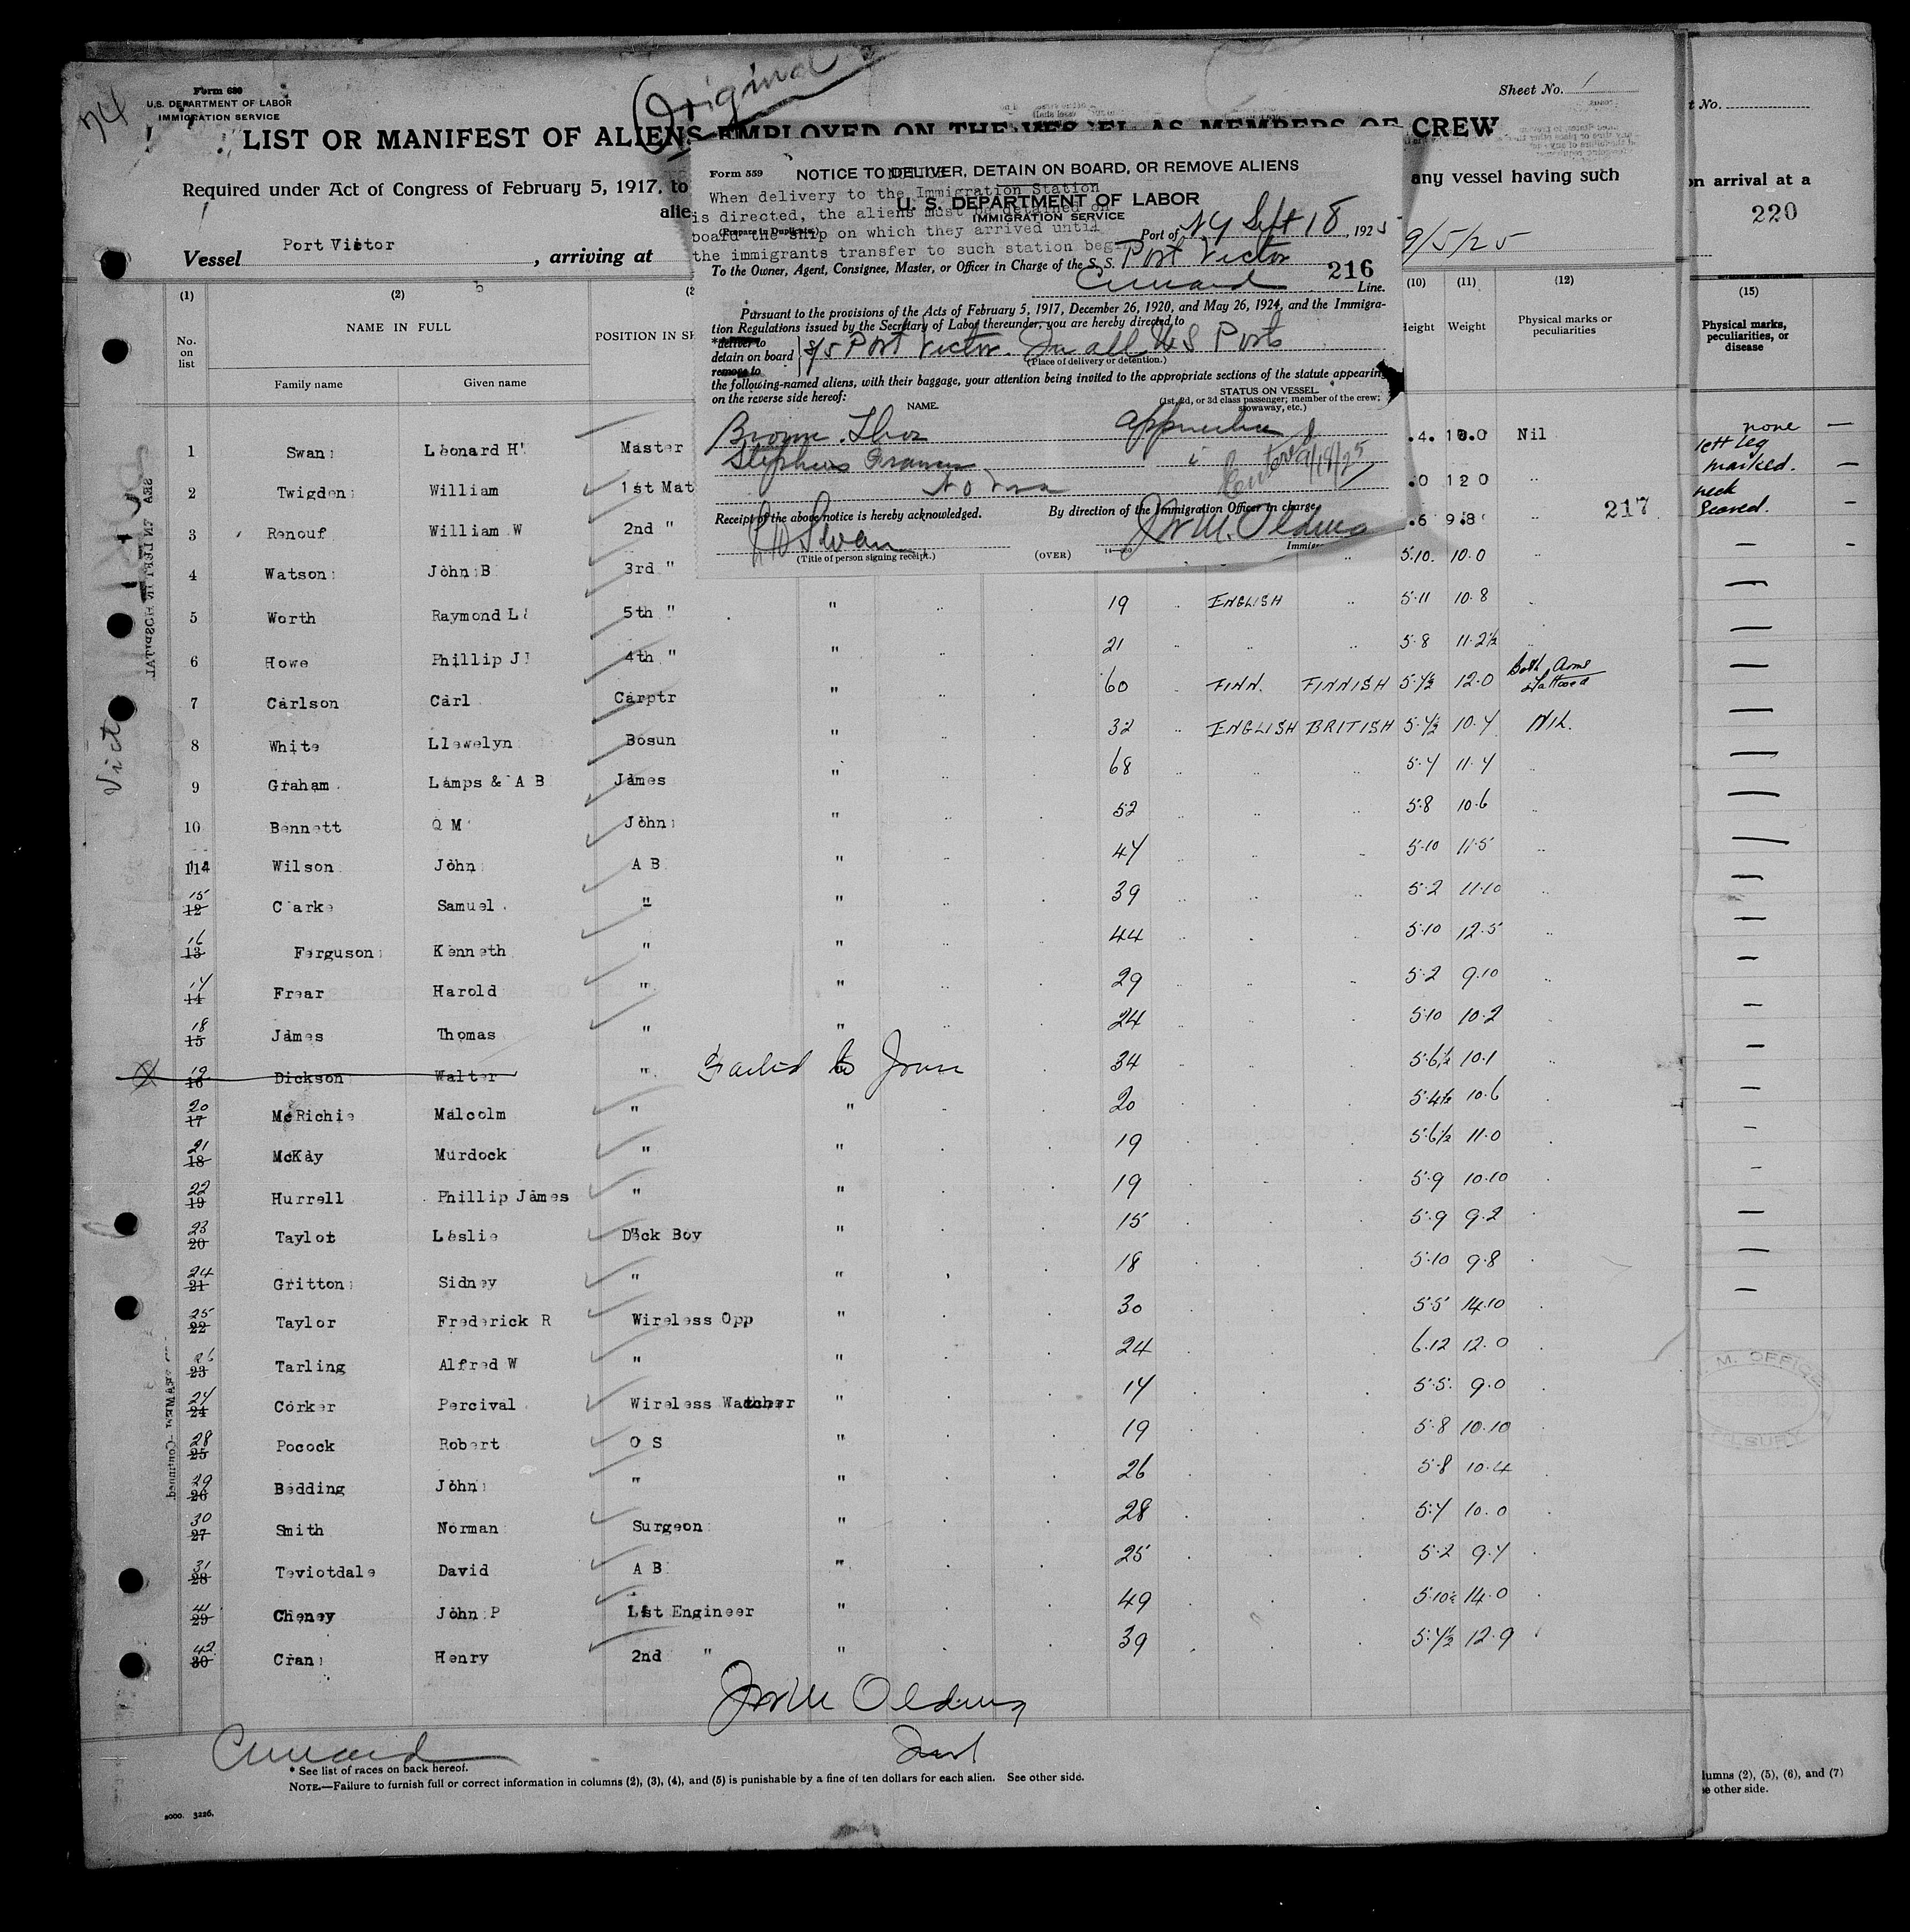 74
Original
Form 680
U.S. DEPARTMENT OF LABOR
IMMIGRATION SERVICE
Sheet No. 1
LIST OR MANIFEST OF ALIENS EMPLOYED ON THE VESSEL AS MEMBERS OF CREW
Required under Act of Congress of February 5, 1917, to
any vessel having such
alie
Vessel Port Victor , arriving at
9/5/25
Form 559
NOTICE TO DELIVER, DETAIN ON BOARD, OR REMOVE ALIENS
When delivery to the Immigration Station
U. S. DEPARTMENT OF LABOR
is directed, the aliens must be detained on
IMMIGRATION SERVICE
(Prepare in Duplicate)
board the ship on which they arrived until
Port of NY Sept 18, 1925
the immigrants transfer to such station beg
To the Owner, Agent, Consignee, Master, or Officer in Charge of the S. S. Port Victor
216
Cunard Line.
Pursuant to the provisions of the Acts of February 5, 1917, December 26, 1920, and May 26, 1924, and the Immigra-
tion Regulations issued by the Secretary of Labor thereunder, you are hereby directed to
*deliver to
detain on board
remove to
S/S Port Victor. In all U S Ports
(Place of delivery or detention.)
the following-named aliens, with their baggage, your attention being invited to the appropriate sections of the statute appearing
on the reverse side hereof:
STATUS ON VESSEL.
(1st, 2d, or 3d class passenger; member of the crew;
stowaway, etc.)
NAME.
Brown. Thos Apprentice
Stephens Francis
No Visa
9/18/25
Receipt of the above notice is hereby acknowledged.
By direction of the Immigration Officer in charge
L H Swan
(Title of person signing receipt.)
(OVER)
(1)
(2)
(10)
(11)
(12)
No. on list
NAME IN FULL
Family name
Given name
POSITION IN SH
Height
Weight
Physical marks or peculiarities
1 Swan Leonard H Master .4. 10.0 Nil
2 Twigden William 1st Mat .0 12 0 "
217
3 Renouf William W 2nd " .6 9.8 "
4 Watson John B 3rd " 5.10. 10.0 "
5 Worth Raymond L 5th " " 19 ENGLISH " 5.11 10.8
6 Howe Phillip J 4th " " 21 5.8 11.2½
7 Carlson Carl Carptr " 60 FINN. FINNISH 5.7½ 12.0 Both Arms Tattooed
8 White Llewelyn Bosun " 32 ENGLISH BRITISH 5.7½ 10.7 NIL.
9 Graham Lamps & A B James " 68 5.7 11.7
10 Bennett Q M John " 52 5.8 10.6
114 Wilson John A B " 47 5.10 11.5
15 12 Clarke Samuel " " 39 5.2 11.10
16 13 Ferguson Kenneth " " 44 5.10 12.5
17 14 Frear Harold " " 29 5.2 9.10
18 15 James Thomas " " 24 5.10 10.2
19 16 Dickson Walter " Failed to Join 34 5.6½ 10.1
20 17 McRichie Malcolm " " 20 5.4½ 10.6
21 18 McKay Murdock " " 19 5.6½ 11.0
22 19 Hurrell Phillip James " " 19 5.9 10.10
23 20 Taylot Leslie Deck Boy " 15 5.9 9.2
24 21 Gritton Sidney " " 18 5.10 9.8
25 22 Taylor Frederick R Wireless Opp " 30 5.5 14.10
26 23 Tarling Alfred W " " 24 6.12 12.0
27 24 Corker Percival Wireless Watcher " 17 5.5. 9.0
28 25 Pocock Robert O S " 19 5.8 10.10
29 26 Bedding John " " 26 5.8 10.4
30 27 Smith Norman Surgeon " 28 5.7 10.0
31 28 Teviotdale David A B " 25 5.2 9.7
41 29 Cheney John P 1st Engineer " 49 5.10½ 14.0
42 30 Cran Henry 2nd " " 39 5.7½ 12.9
Cunard
* See list of races on back hereof.
NOTE.—Failure to furnish full or correct information in columns (2), (3), (4), and (5) is punishable by a fine of ten dollars for each alien. See other side.
5000. 3226.
t No.
on arrival at a
220
(15)
Physical marks, peculiarities, or disease
none
left leg
marked.
neck
Scared.
M. OFFICE
TILBURY
lumns (2), (5), (6), and (7)
e other side.